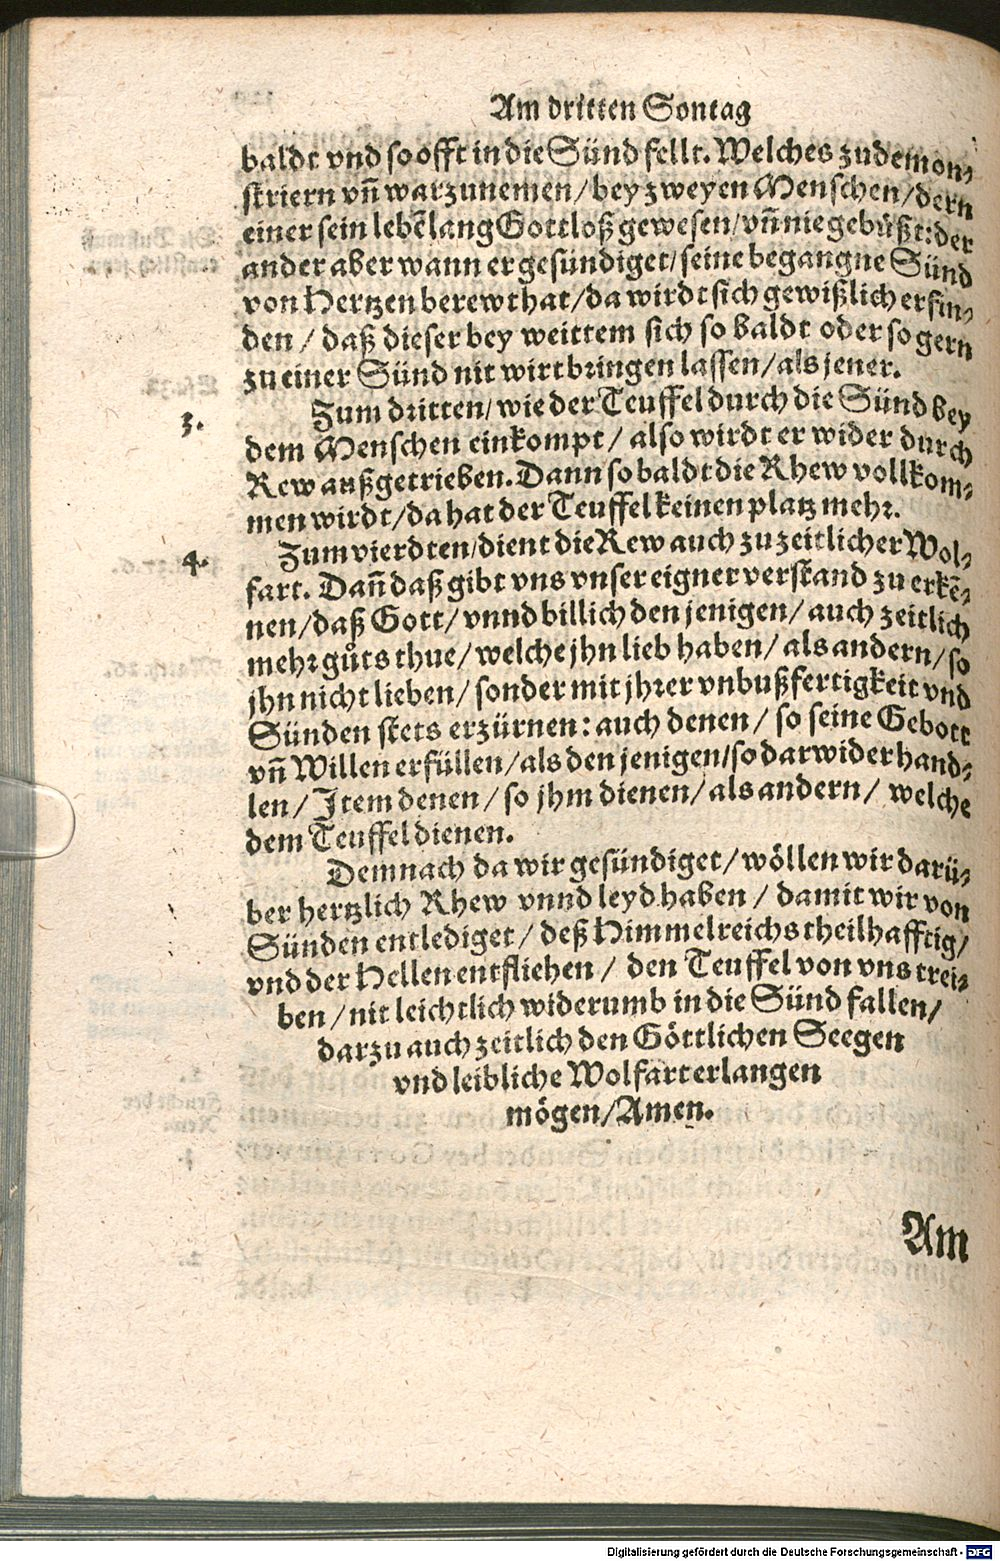 Am dritten Sontag
baldt vnd so offt in die Sünd fellt. Welches zu demon-
striern vñ warzunemen / bey zweyen Menschen / dern
einer sein lebẽlang Gottloß gewesen / vñ nie gebüßt: der
ander aber wann er gesündiget / seine begangne Sünd
von Hertzen berewt hat / da wirdt sich gewißlich erfin-
den / daß dieser bey weittem sich so baldt oder so gern
zu einer Sünd nit wirt bringen lassen / als jener.
3. Zum dritten / wie der Teuffel durch die Sünd bey
dem Menschen einkompt / also wirdt er wider durch
Rew außgetrieben. Dann so baldt die Rhew vollkom-
men wirdt / da hat der Teuffel keinen platz mehr.
4. Zum vierdten / dient die Rew auch zu zeitlicher Wol-
fart. Dañ daß gibt vns vnser eigner verstand zu erkẽ-
nen / daß Gott / vnnd billich den jenigen / auch zeitlich
mehr gůts thue / welche jhn lieb haben / als andern / so
jhn nicht lieben / sonder mit jhrer vnbußfertigkeit vnd
Sünden stets erzürnen: auch denen / so seine Gebott
vñ Willen erfüllen / als den jenigen / so darwider hand-
len / Item denen / so jhm dienen / als andern / welche
dem Teuffel dienen.
Demnach da wir gesündiget / wöllen wir darü-
ber hertzlich Rhew vnnd leyd haben / damit wir von
Sünden entlediget / deß Himmelreichs theilhafftig /
vnd der Hellen entfliehen / den Teuffel von vns trei-
ben / nit leichtlich widerumb in die Sünd fallen /
darzu auch zeitlich den Göttlichen Seegen
vnd leibliche Wolfart erlangen
mögen / Amen.
Am
Digitalisierung gefördert durch die Deutsche Forschungsgemeinschaft - DFG